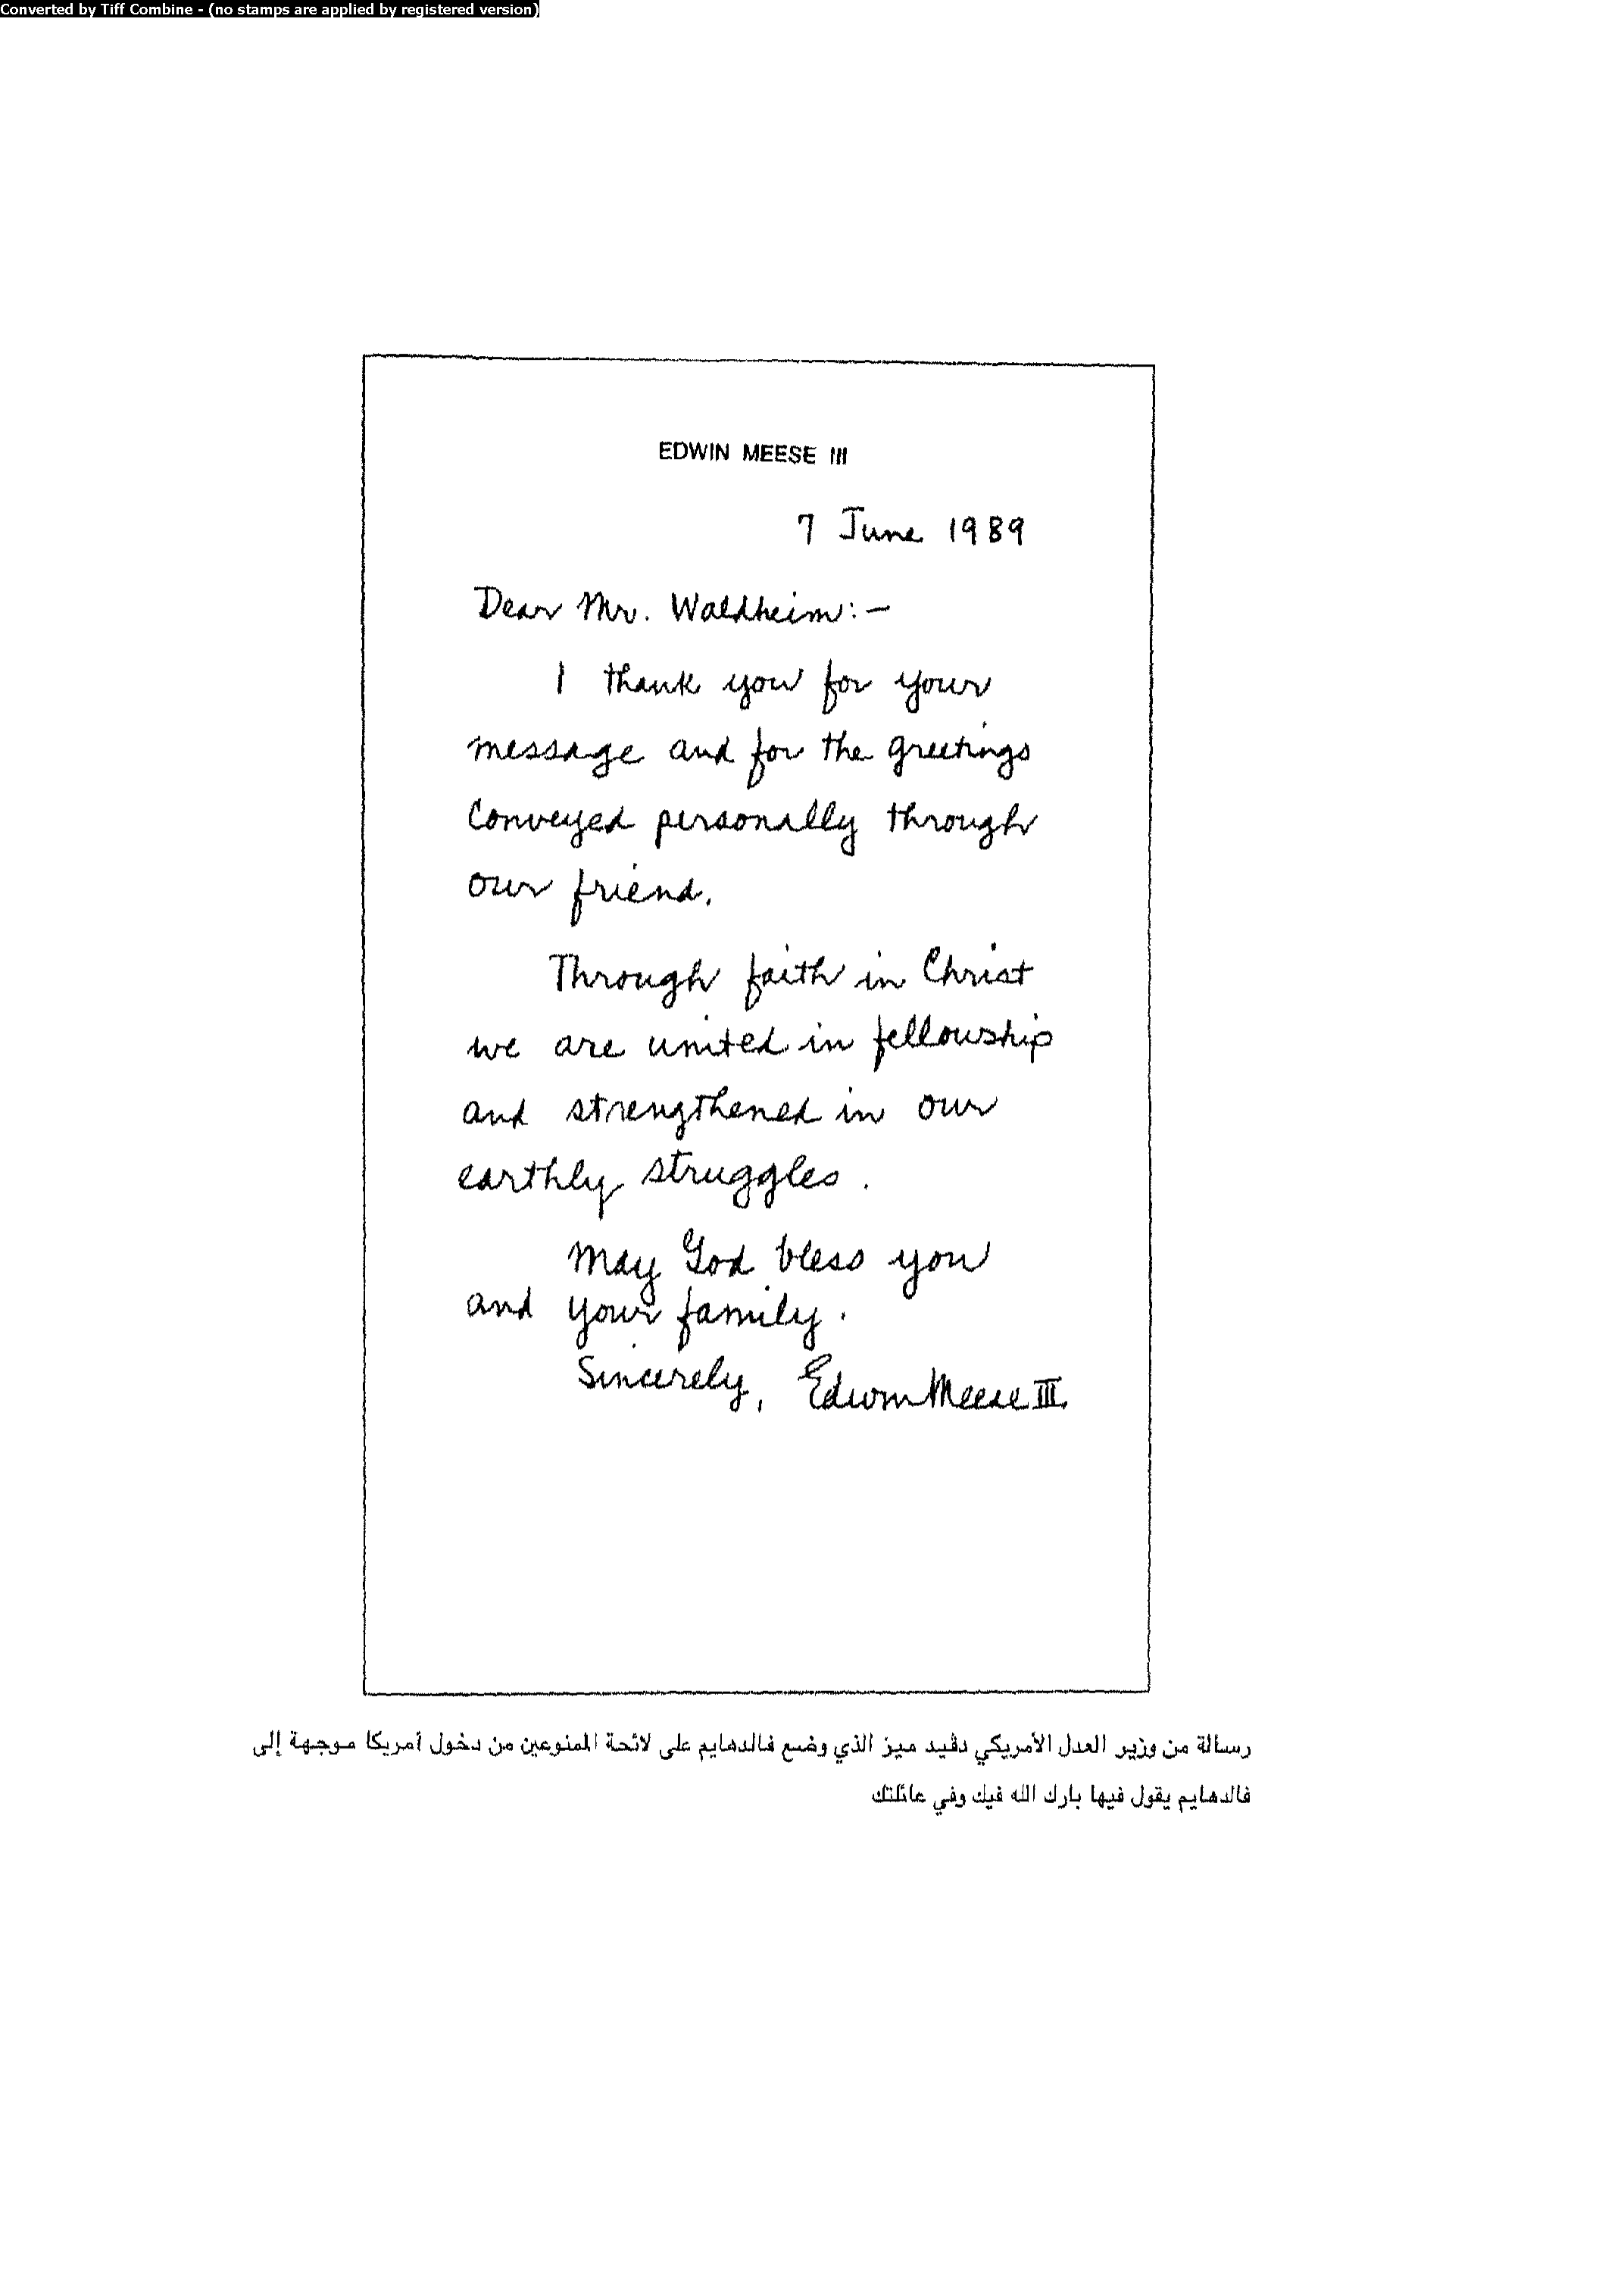 Converted by Tiff Combine - (no stamps are applied by registered version)
EDWIN MEESE III
7 June 1989
Dear Mr. Waldheim:—
I thank you for your
message and for the greetings
conveyed personally through
our friend.
Through faith in Christ
we are united in fellowship
and strengthened in our
earthly struggles.
May God bless you
and your family.
Sincerely, Edwin Meese III
رسالة من وزير العدل الأمريكي دڤيد ميز الذي وضع فالدهايم على لائحة الممنوعين من دخول أمريكا موجهة إلى
فالدهايم يقول فيها بارك الله فيك وفي عائلتك